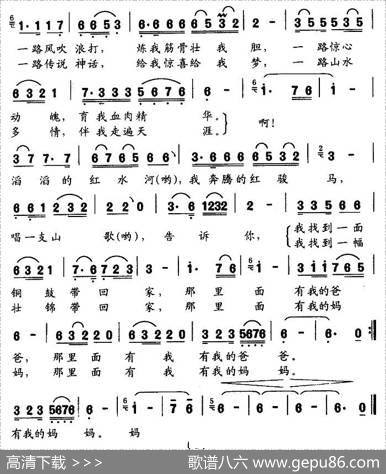 1·1 1 7 6 6 5 3 1·6 6 6 6 6 5 3 2 2 - 3 5 5 5 5 3 5
一路风吹 浪打, 炼我筋骨壮 我 胆, 一路惊心
一路传说 神话, 给我惊喜给 我 梦, 一路山水
6 3 2 1 7·7 6 7 6 5 6 - 1· 7 6 6 -
动 魄, 育我血肉精 华。 啊!
多 情, 伴我走遍天 涯。
3 7 7· 7 6 7 6 5 6 6 3·6 6 6 6 5 3 2 3 -
滔滔的 红水 河(哟),我奔腾的红骏 马,
6 6 1 2 3 2 2 2 3·6 1 2 3 2 2 -
唱一支山 歌(哟), 告 诉你,
我找到一面
我找到一幅
6 3 2 1 7·6 7 2 3 3 - 1· 7 6 1 - 3 1 1 7 6 5
铜 鼓 带 回 家, 那 里 面 有我的爸
壮 锦 带 回 家, 那 里 面 有我的妈
6 - 6 3 2 2 0 6 3 2 2 0 3 2 3 5 6 7 6 6 - 6· 0
爸, 那里面 有 我 有我的爸 爸。
妈, 那里面 有 我 有我的妈 妈。
3 2 3 5 6 7 6 6 - 1 - 7 6 5 6 - 6 - 6 - 6· 0
有我的妈 妈。 妈
高清下载 >>>
歌谱八六 www.gepu86.com